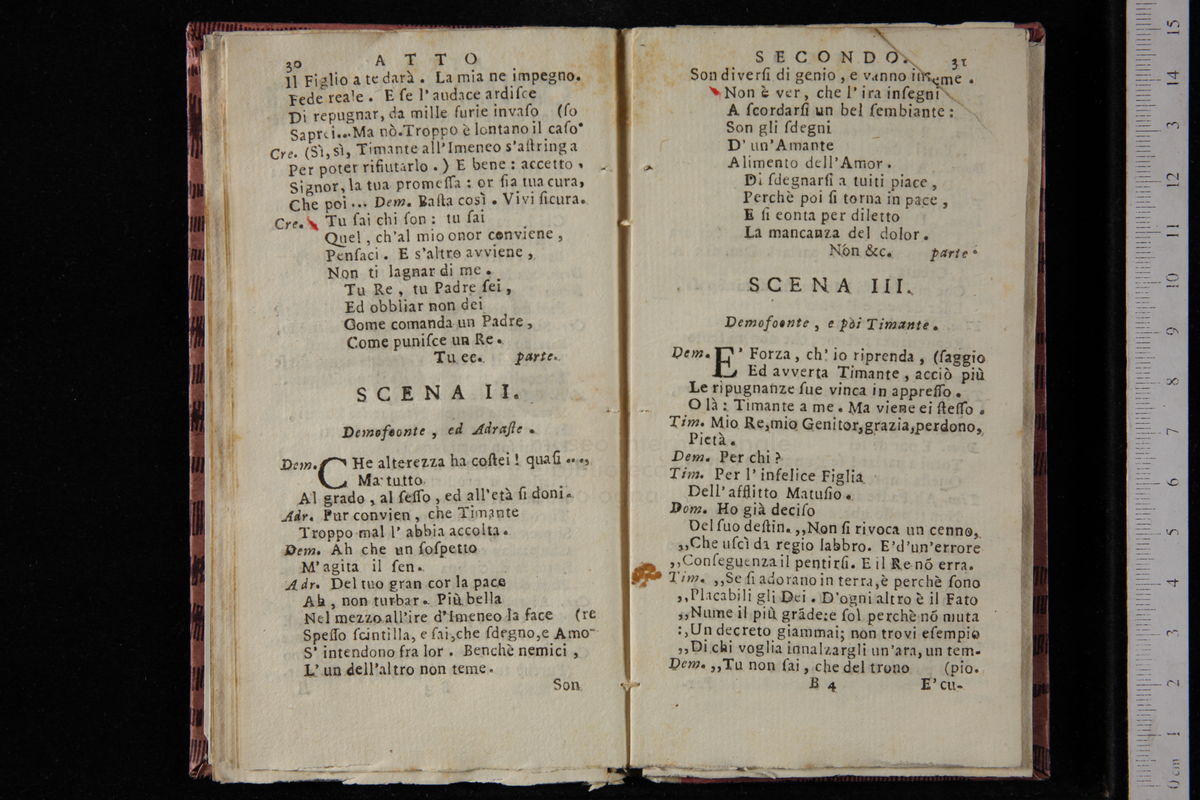 30 ATTO
Il Figlio a te darà. La mia ne impegno.
Fede reale. E ſe l'audace ardiſce
Di repugnar, da mille furie invaſo (ſo
Saprei... Ma nò. Troppo è lontano il caſo
Cre. (Sì, sì, Timante all'Imeneo s'aſtringa
Per poter rifiutarlo.) E bene: accetto,
Signor, la tua promeſſa: or ſia tua cura,
Che poi... Dem. Baſta così. Vivi ſicura.
Cre. Tu ſai chi ſon: tu ſai
Quel, ch'al mio onor conviene,
Penſaci. E s'altro avviene,
Non ti lagnar di me.
Tu Re, tu Padre ſei,
Ed obbliar non dei
Come comanda un Padre,
Come puniſce un Re.
Tu ec. parte.
SCENA II.
Demofoonte, ed Adraſte.
Dem. CHe alterezza ha coſtei! quaſi ....,
Ma tutto
Al grado, al ſeſſo, ed all'età ſi doni.
Adr. Pur convien, che Timante
Troppo mal l'abbia accolta.
Dem. Ah che un ſoſpetto
M'agita il ſen.
Adr. Del tuo gran cor la pace
Ah, non turbar. Più bella
Nel mezzo all'ire d'Imeneo la face (re
Speſſo ſcintilla, e ſai, che ſdegno, e Amo-
S'intendono fra lor. Benchè nemici,
L'un dell'altro non teme.
Son
SECONDO. 31
Son diverſi di genio, e vanno inſieme.
Non è ver, che l'ira inſegni
A ſcordarſi un bel ſembiante:
Son gli ſdegni
D'un'Amante
Alimento dell'Amor.
Di ſdegnarſi a tuiti piace,
Perchè poi ſi torna in pace,
E ſi eonta per diletto
La mancanza del dolor.
Non &c. parte.
SCENA III.
Demofoonte, e poi Timante.
Dem. E' Forza, ch'io riprenda, (ſaggio
Ed avverta Timante, acciò più
Le ripugnanze ſue vinca in appreſſo.
O là: Timante a me. Ma viene ei ſteſſo.
Tim. Mio Re, mio Genitor, grazia, perdono,
Pietà.
Dem. Per chi?
Tim. Per l'infelice Figlia
Dell'afflitto Matuſio.
Dom. Ho già deciſo
Del ſuo deſtin. ,,Non ſi rivoca un cenno,
,,Che uſcì da regio labbro. E' d'un'errore
,,Conſeguenza il pentirſi. E il Re nõ erra.
Tim. ,,Se ſi adorano in terra, è perchè ſono
,,Placabili gli Dei. D'ogni altro è il Fato
,,Nume il più grãde: e ſol perchè nõ muta
:,Un decreto giammai; non trovi eſempio
,,Di chi voglia innalzargli un'ara, un tem-
Dem. ,,Tu non ſai, che del trono (pio.
B 4 E' cu-